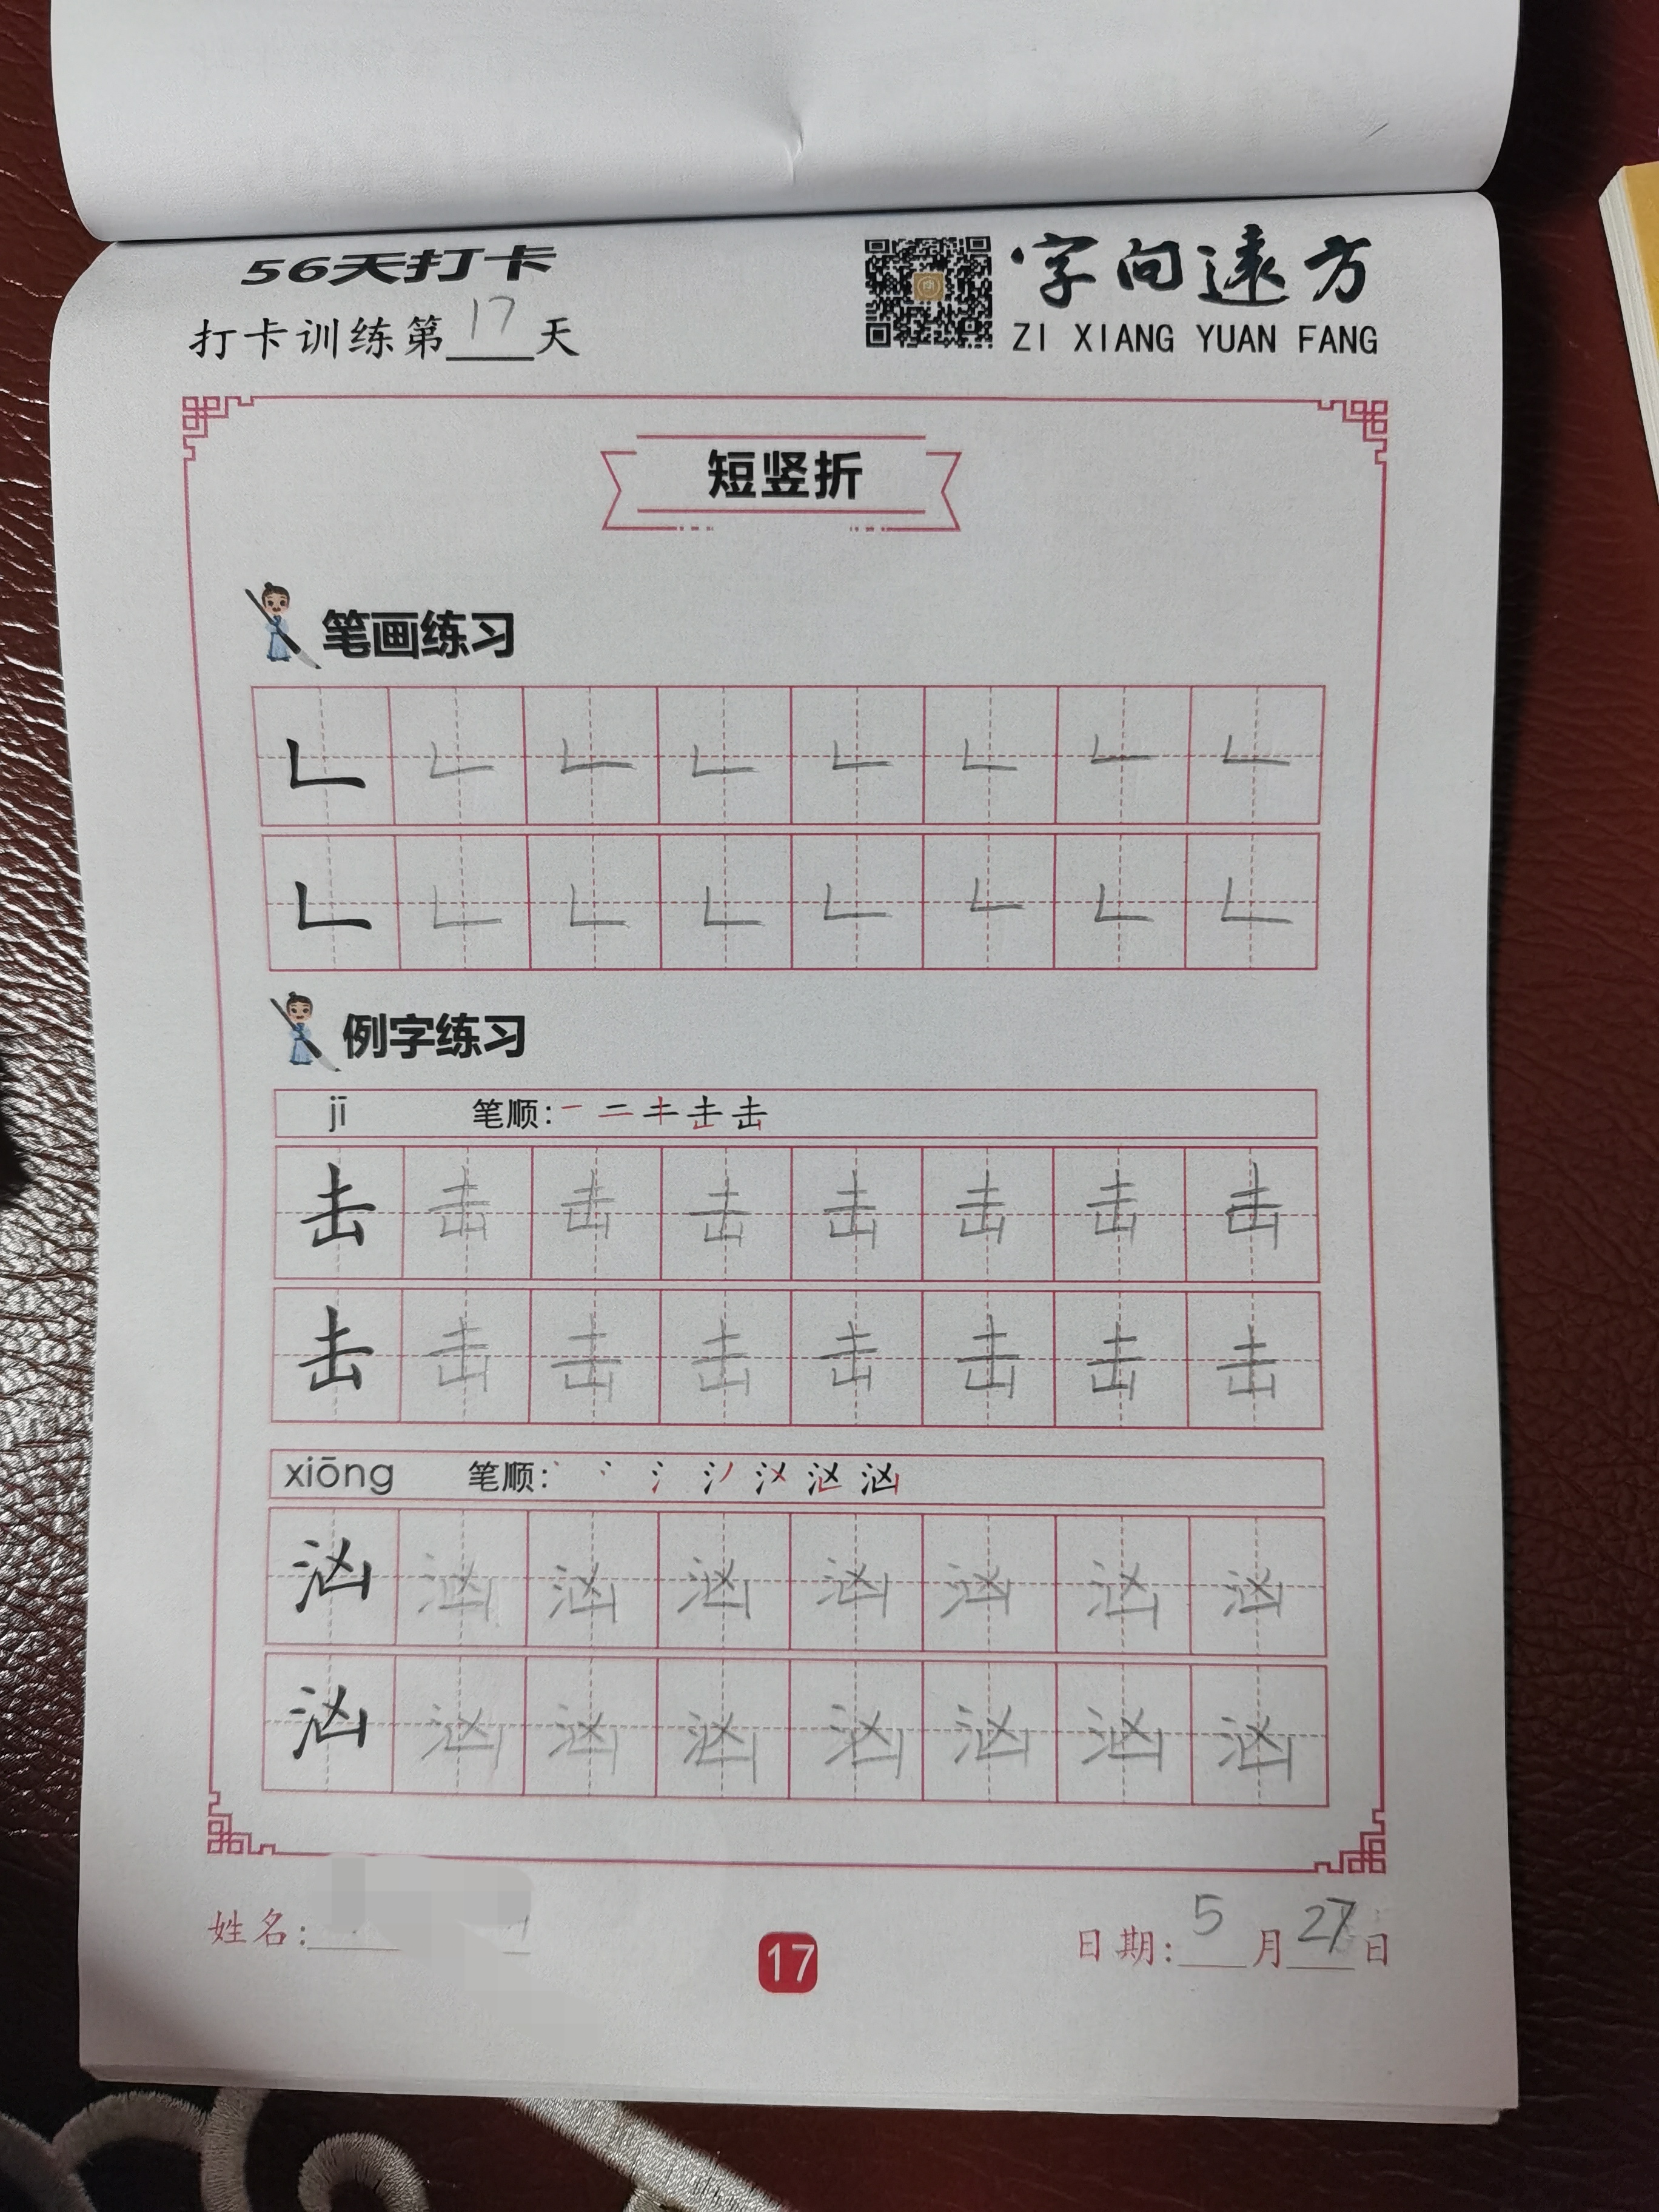 56天打卡
打卡训练第17天
字向遠方
ZI XIANG YUAN FANG
短竖折
笔画练习
𠃊 𠃊 𠃊 𠃊 𠃊 𠃊 𠃊 𠃊
𠃊 𠃊 𠃊 𠃊 𠃊 𠃊 𠃊 𠃊
例字练习
jī 笔顺:
击 击 击 击 击 击 击 击
击 击 击 击 击 击 击 击
xiōng 笔顺:
汹 汹 汹 汹 汹 汹 汹 汹
汹 汹 汹 汹 汹 汹 汹 汹
姓名:
17
日期: 5月27日